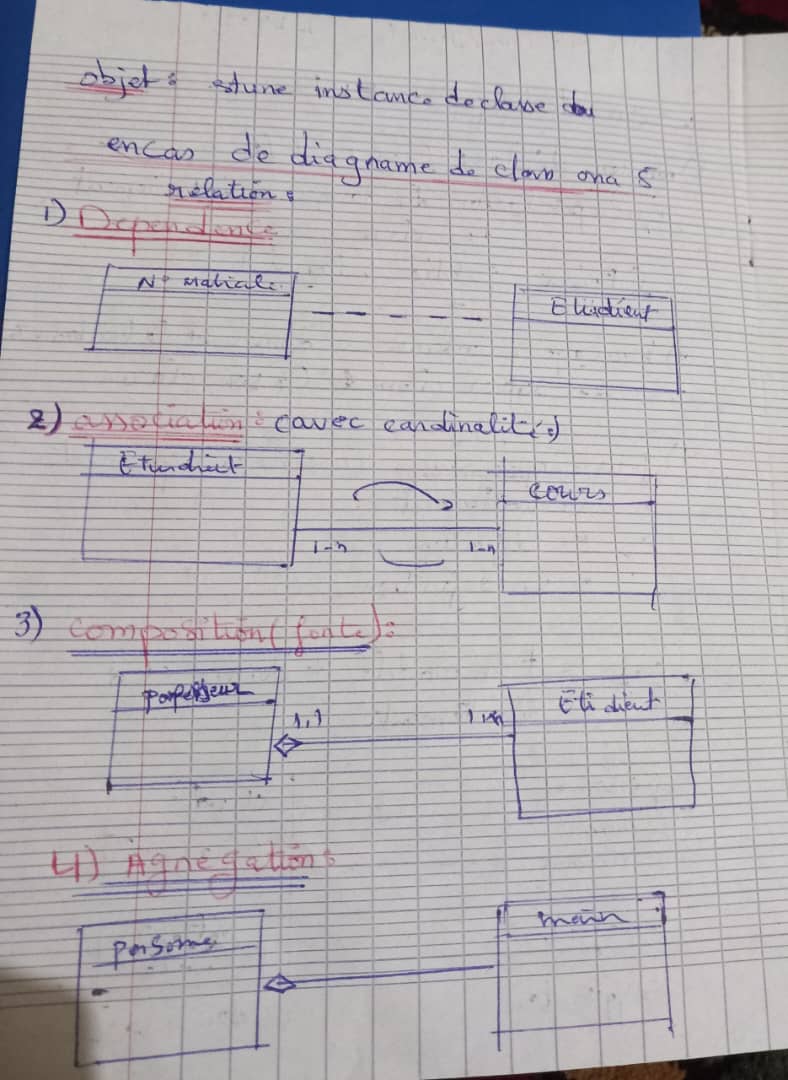 objet : est une instance de classe
en cas de diagname de class ona 5
rélation :
1) Dependence
N° matricale
Etudient
2) association : (avec cardinalité)
Etundient
cours
1-n
1-n
3) composition (forte) :
porfesseur
Etidient
1,1
1,n
4) Agnégation :
personne
main